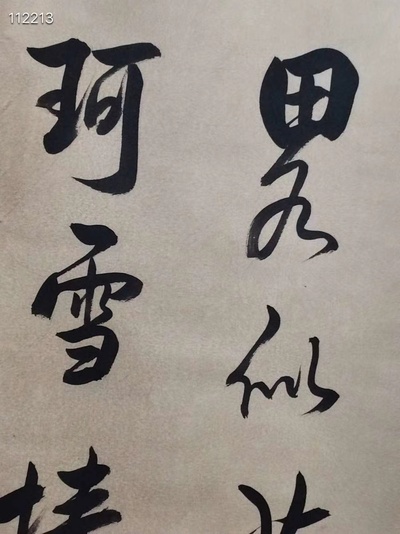 112213
畧似
珂雪